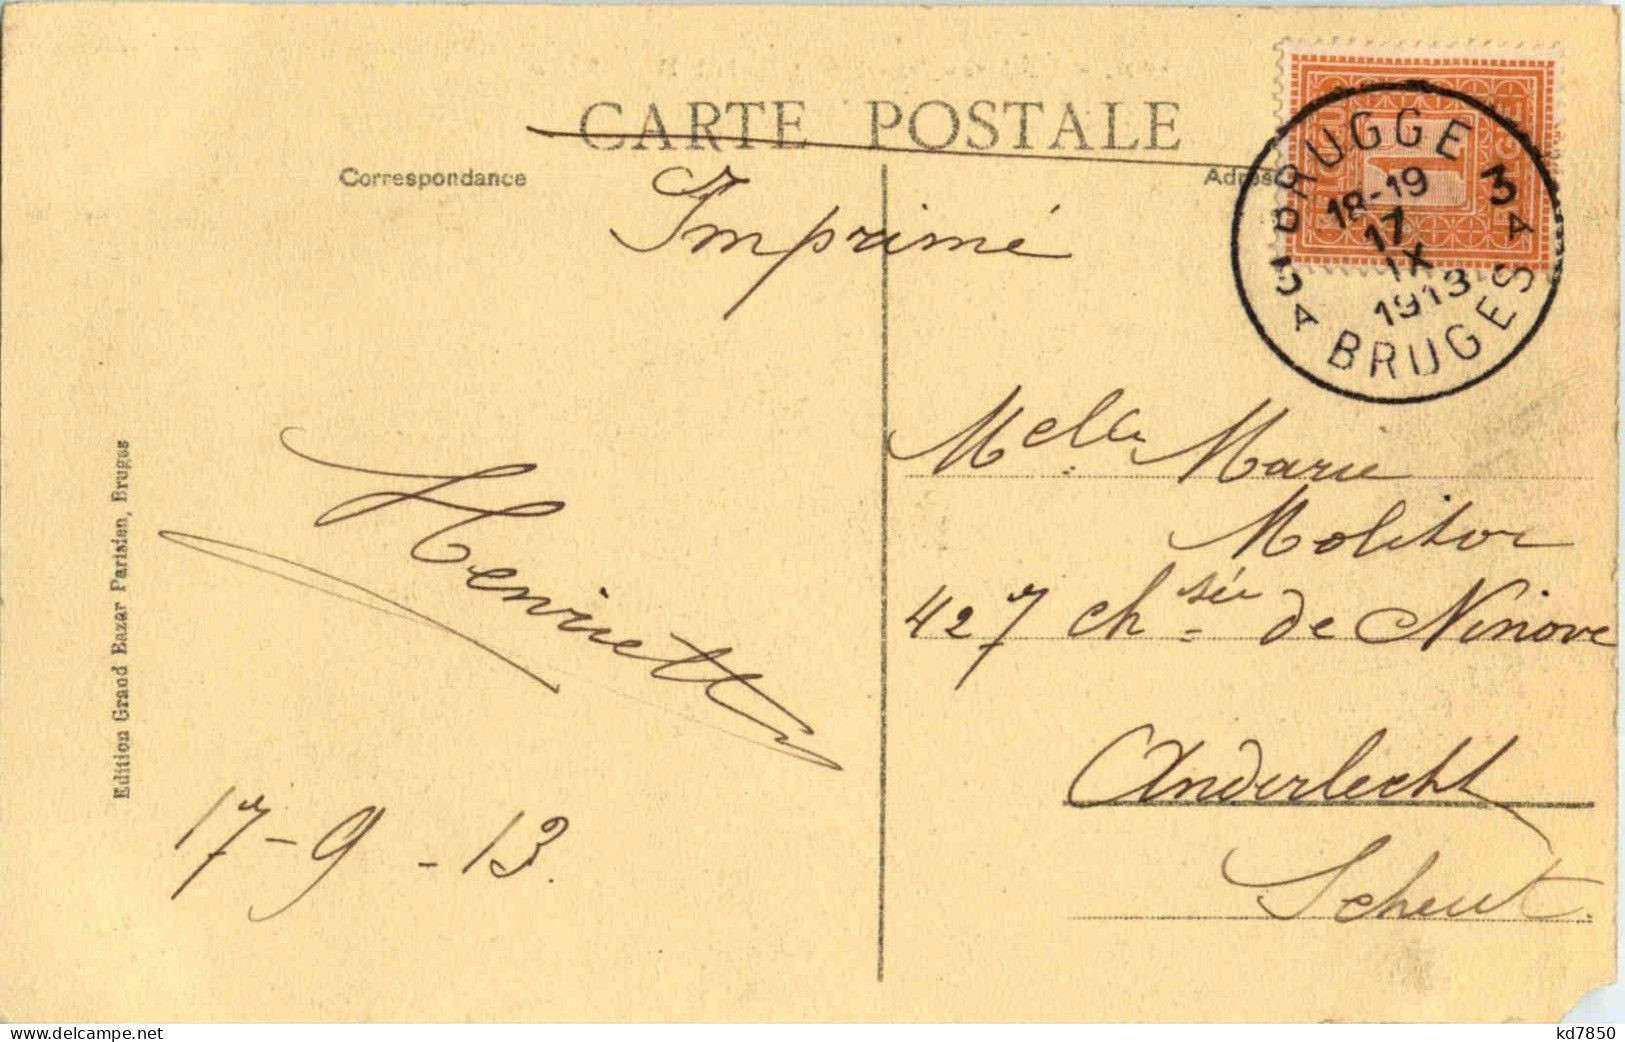 CARTE POSTALE
Correspondance
Adress
Imprimé
BRUGGE
3 3
18-19
17
IX
1913
A A
BRUGES
Melle Marie
Molitor
427 chsée de Ninove
Anderlecht
Scheut.
Henriette
17-9-13.
Edition Grand Bazar Parisien, Bruges
www.delcampe.net
kd7850